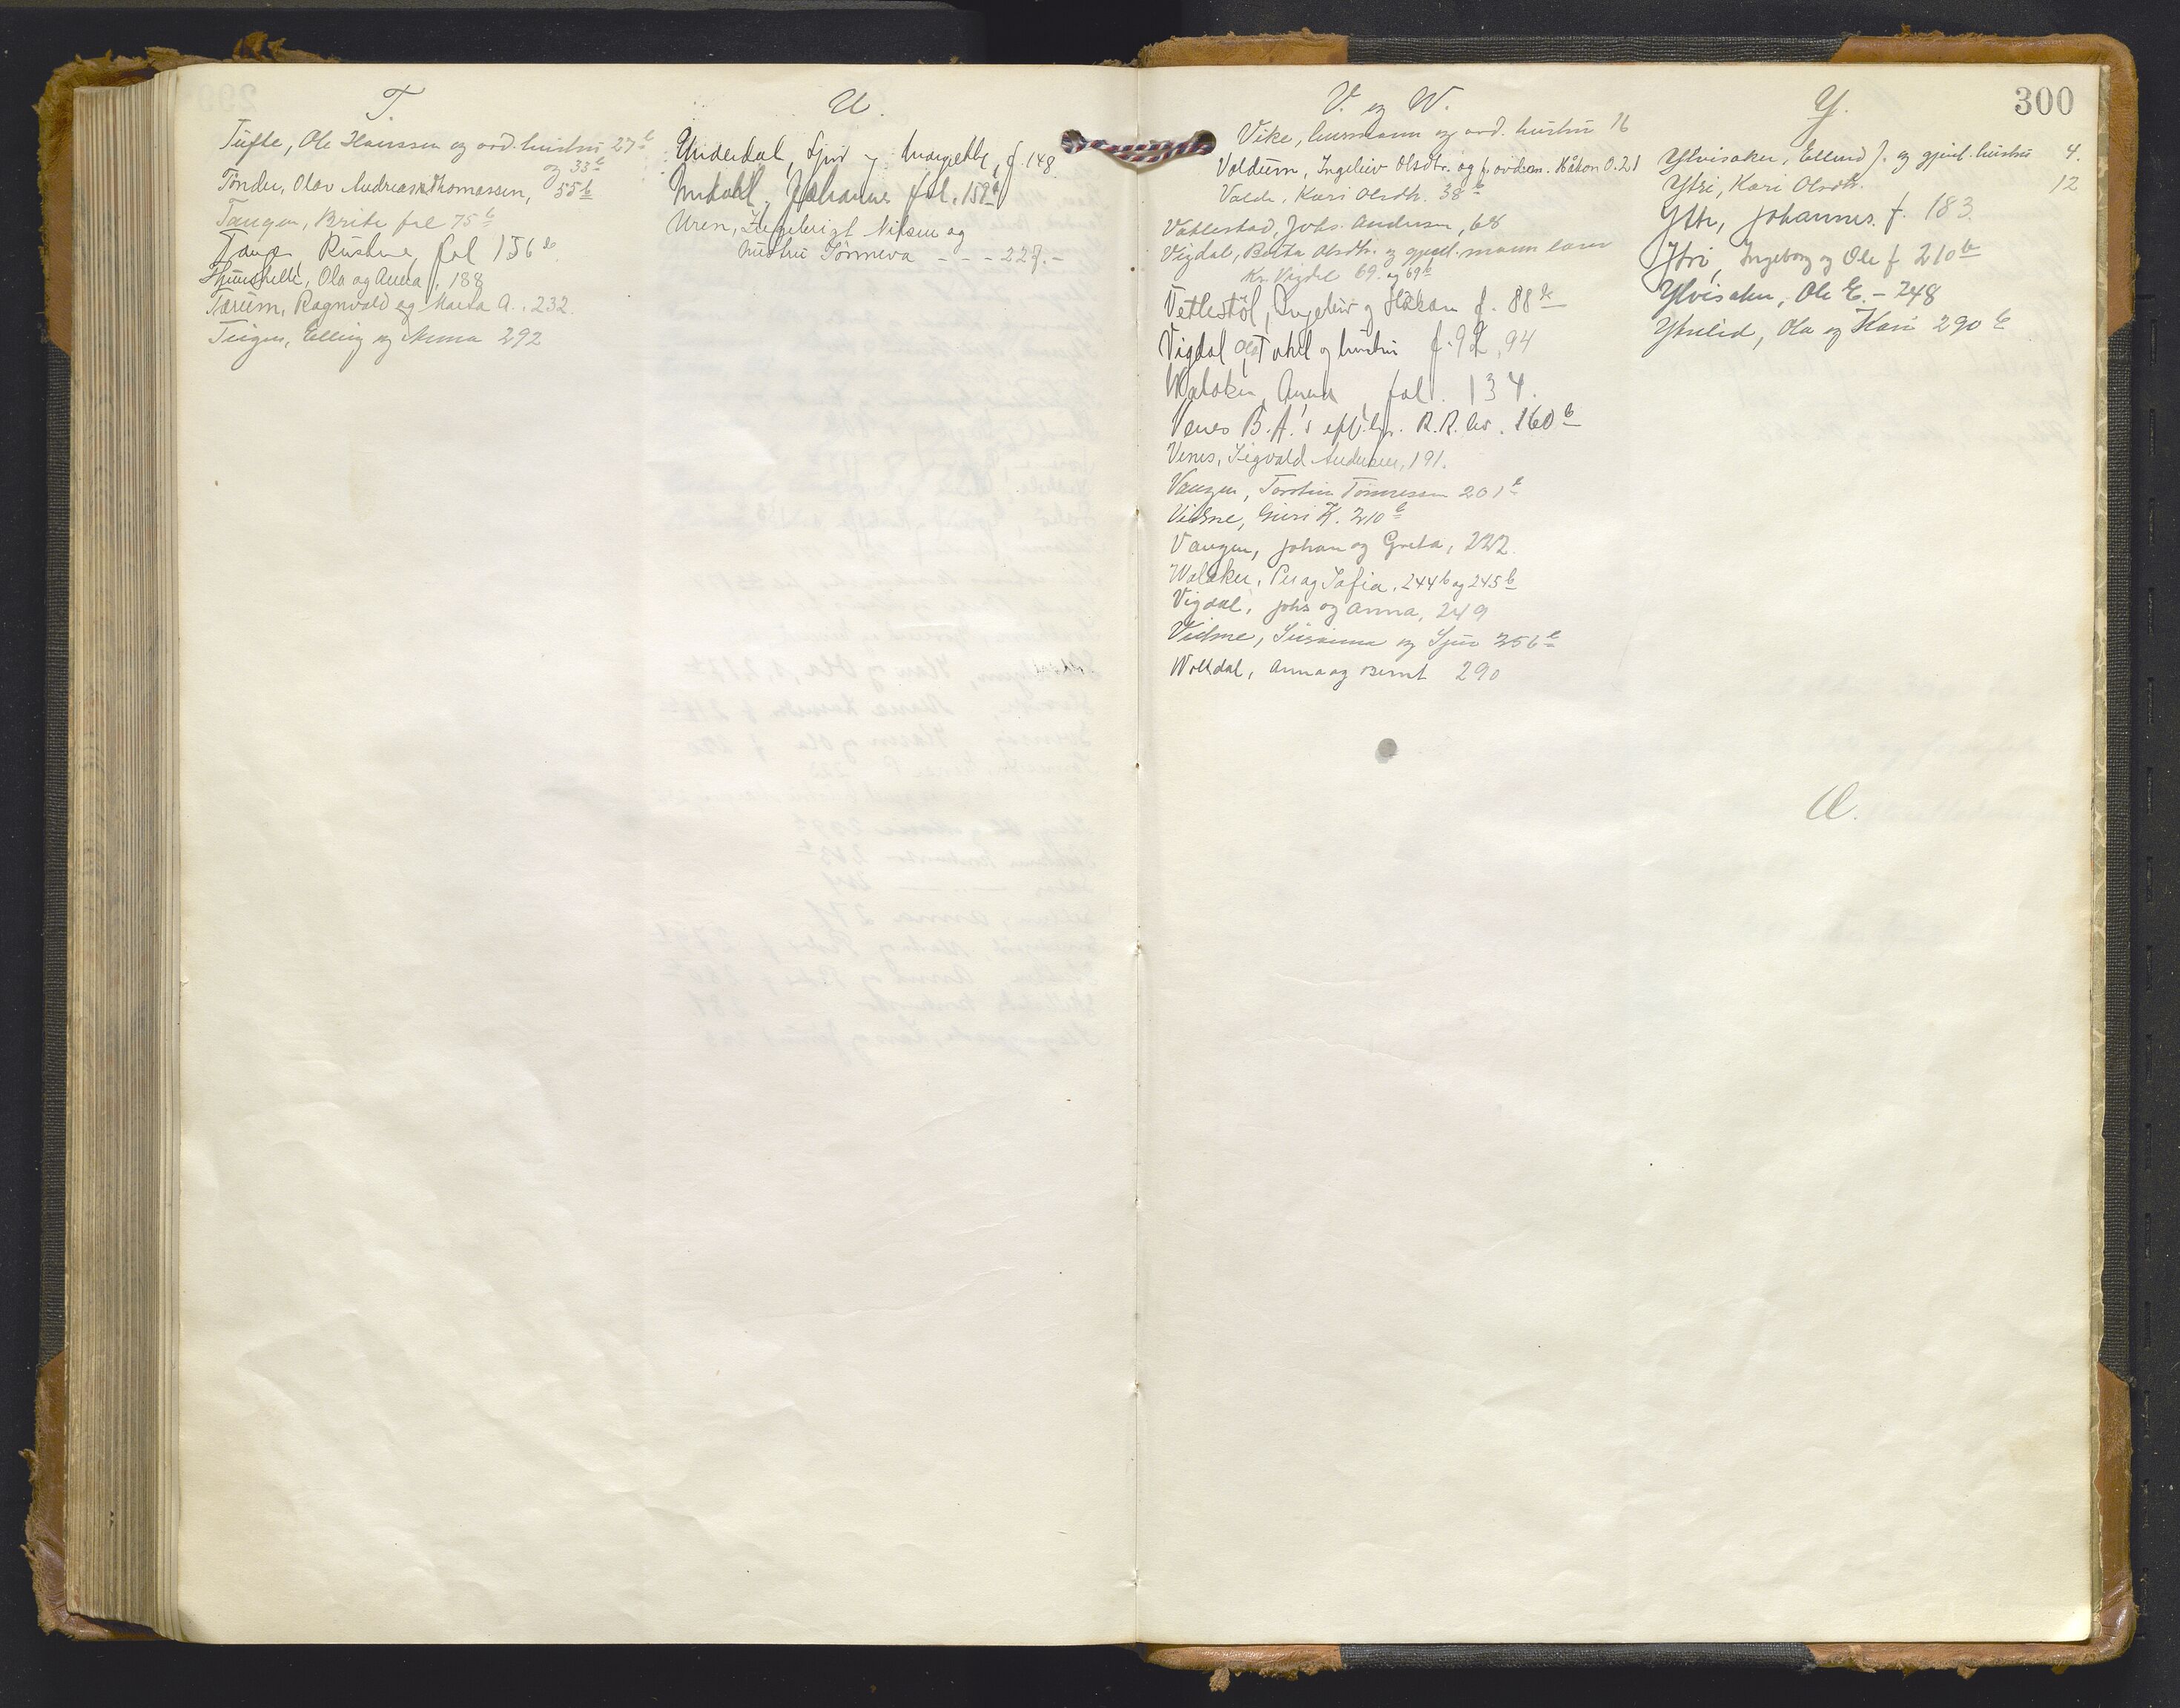 T.
Tufte, Ole Hanssen og avd. hustru 27b
og 33b
Tønder, Olav Andreas Thomassen, 55b
Tangen, Brite fol 75b
Tange, Kristine, fol 156b
Ola og Anna f. 188
Tærum, Ragnvald og Marta A. 232.
Teigen, Elling og Anna 292
U.
Underdal, Sjur og Margrethe, f. 148.
Johannes fol. 159b
Uren, Ingebrigt Nilsen og
hustru Sønneva - - - 227. -
V. og W.
300
Vike, husmann og avd. hustru 16
Voldum, Ingeleiv Olsdtr. og f. avd. m. Håkon O. 21
Valde, Kari Olsdtr. 38b
Vatlestad, Johs. Andersen, 68
Vigdal, Olsdtr. og gjenl. mann Lars
Kr. Vigdal 69. og 69b
Vetlestøl, Ingeleiv og Håkon f. 88b
Vigdal og hustru f. 92, 94
Walaker, Anna, fol. 134.
Venes B. A.'s 160b
Venes, Sigvald Andersen, 191.
Vangen, Torstein Tønnessen 201b
Vidme, Guri K. 210b
Vangen, Johan og Greta, 222.
Walaker, Per og Sofia, 244b og 245b
Vigdal, Johs og Anna, 249
Vidme, Susanna og Sjur 256b
Wolldal, Anna og Bernt 290
Y.
Ylvisaker, Ellend J. og gjenl. hustru 4.
Ytri, Kari Olsdtr. 12
Ytri, Johannes. f. 183.
Ytri, Ingeborg og Ole f. 210b
Ylvisaker, Ole E. - 248
Ytrelid, Ola og Kari 290b
Æ.